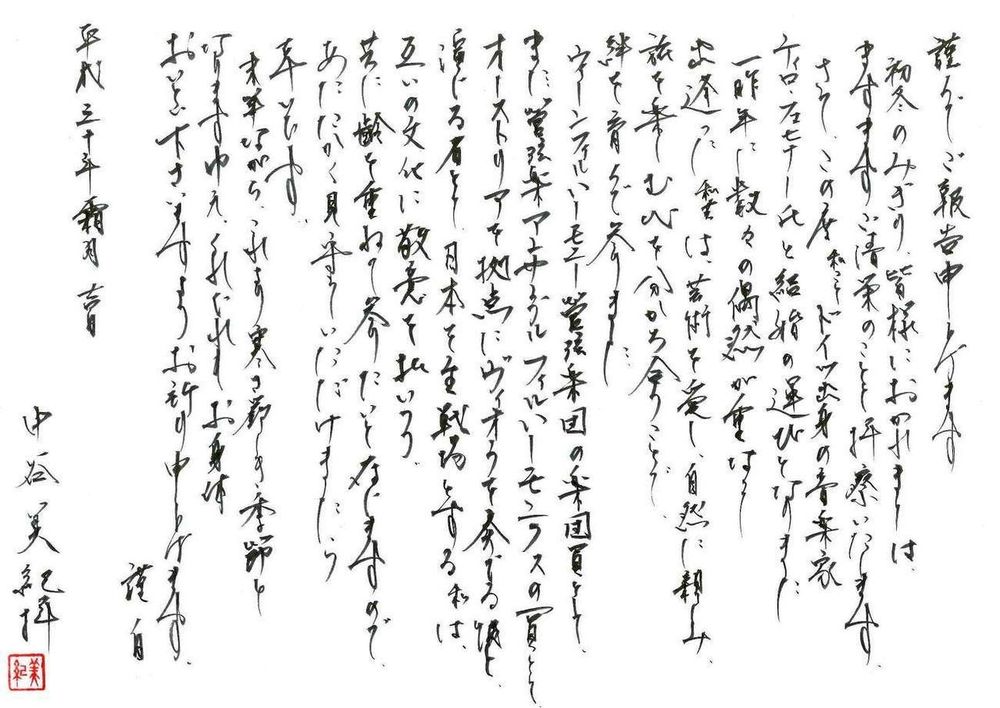 謹んでご報告申し上げます
初冬のみぎり、皆様におかれましては、
ますますご清栄のことと拝察いたします。
さて、この度、私こと ドイツ出身の音楽家
ティロ・フェヒナー氏と結婚の運びとなりました
一昨年に数々の偶然が重なり
出逢った私共は、芸術を愛し、自然に親しみ、
旅を楽しむ心を分かち合うことで、
絆を育んで参りました
ウィーンフィルハーモニー管弦楽団の楽団員として、
また、管弦楽アンサンブルフィルハーモニクスの一員として
オーストリアを拠点にヴィオラを奏でる彼と、
演じる者として日本を主戦場とする私は、
互いの文化に敬意を払いつつ、
共に齢を重ねて参りたいと存じますので、
あたたかく見守っていただけましたら
幸いです。
末筆ながら、これより寒さ厳しき季節と
なります申え、くれぐれもお身体
おいとい下さいますようお祈り申し上げます。
謹白
平成三十年霜月 吉日
中谷美紀拝
美紀